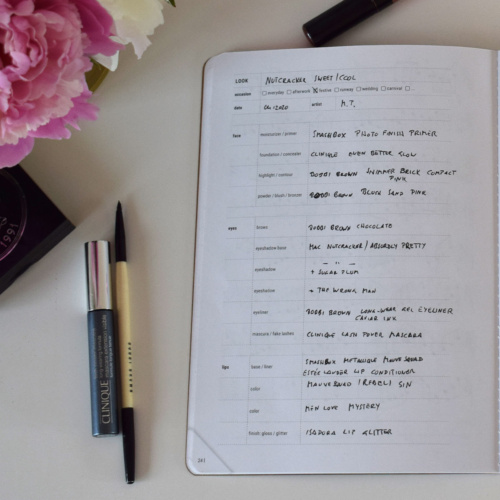 LOOK NUTCRACKER SWEET/COOL
occasion everyday afterwork festive runway wedding carnival
date 04/2020 artist M.T.
face moisturiser / primer SMASHBOX PHOTO FINISH PRIMER
foundation / concealer CLINIQUE EVEN BETTER GLOW
highlight / contour BOBBI BROWN SHIMMER BRICK COMPACT
PINK
powder / blush / bronzer BOBBI BROWN BLUSH SAND PINK
eyes brows BOBBI BROWN CHOCOLATE
eyeshadow base MAC NUTCRACKER / ABSURDLY PRETTY
eyeshadow + SUGAR PLUM
eyeshadow + THE WRONG MAN
eyeliner BOBBI BROWN LONG-WEAR GEL EYELINER
CAVIAR INK
mascara / fake lashes CLINIQUE LASH POWER MASCARA
SMASHBOX METALLIQUE MAUVE SQUAD
lips base / liner ESTÉE LAUDER LIP CONDITIONER
color MAUVE BOARD (REBEL) SIN
color MEN LOVE MYSTERY
finish: gloss / glitter ISADORA LIP GLITTER
241
CLINIQUE
1991